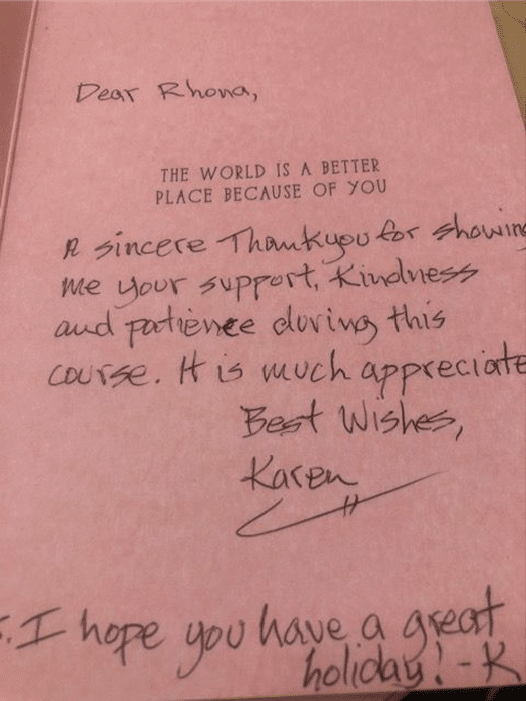 Dear Rhona,
THE WORLD IS A BETTER
PLACE BECAUSE OF YOU
A sincere Thankyou for showing
me your support, Kindness
and patience during this
course. It is much appreciate
Best Wishes,
Karen
S. I hope you have a great
holiday! - K